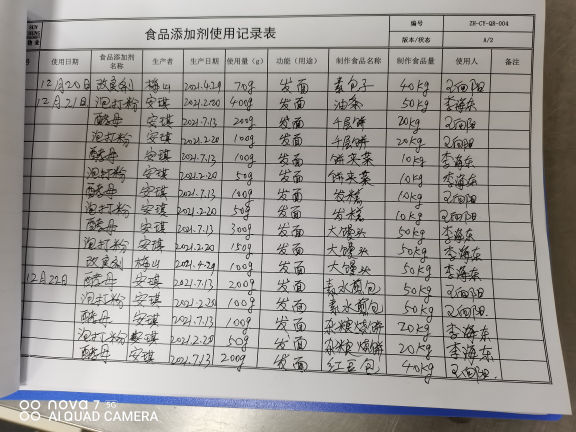 食品添加剂使用记录表
编号 ZH-CY-QR-004
版本/状态 A/2
使用日期 食品添加剂名称 生产者 生产日期 使用量（g） 功能（用途） 制作食品名称 制作食品量 使用人 备注
12月20日 改良剂 梅山 2021.4.29 70g 发面 素包子 40kg 王向阳
12月21日 泡打粉 安琪 2021.2.20 400g 发面 油条 50kg 李海东
酵母 安琪 2021.7.13 200g 发面 千层饼 20kg 王向阳
泡打粉 安琪 2021.2.20 100g 发面 千层饼 20kg 王向阳
酵母 安琪 2021.7.13 100g 发面 饼夹菜 10kg 李海东
泡打粉 安琪 2021.2.20 50g 发面 饼夹菜 10kg 李海东
酵母 安琪 2021.7.13 100g 发面 发糕 10kg 王向阳
泡打粉 安琪 2021.2.20 50g 发面 发糕 10kg 王向阳
酵母 安琪 2021.7.13 300g 发面 大馒头 50kg 李海东
泡打粉 安琪 2021.2.20 150g 发面 大馒头 50kg 李海东
改良剂 梅山 2021.4.29 100g 发面 大馒头 50kg 李海东
12月22日 酵母 安琪 2021.7.13 200g 发面 素水煎包 50kg 王向阳
泡打粉 安琪 2021.2.20 100g 发面 素水煎包 50kg 王向阳
酵母 安琪 2021.7.13 100g 发面 杂粮烧饼 20kg 李海东
泡打粉 安琪 2021.2.20 50g 发面 杂粮烧饼 20kg 李海东
酵母 安琪 2021.7.13 200g 发面 红豆包 40kg 王向阳
nova 7 5G
AI QUAD CAMERA